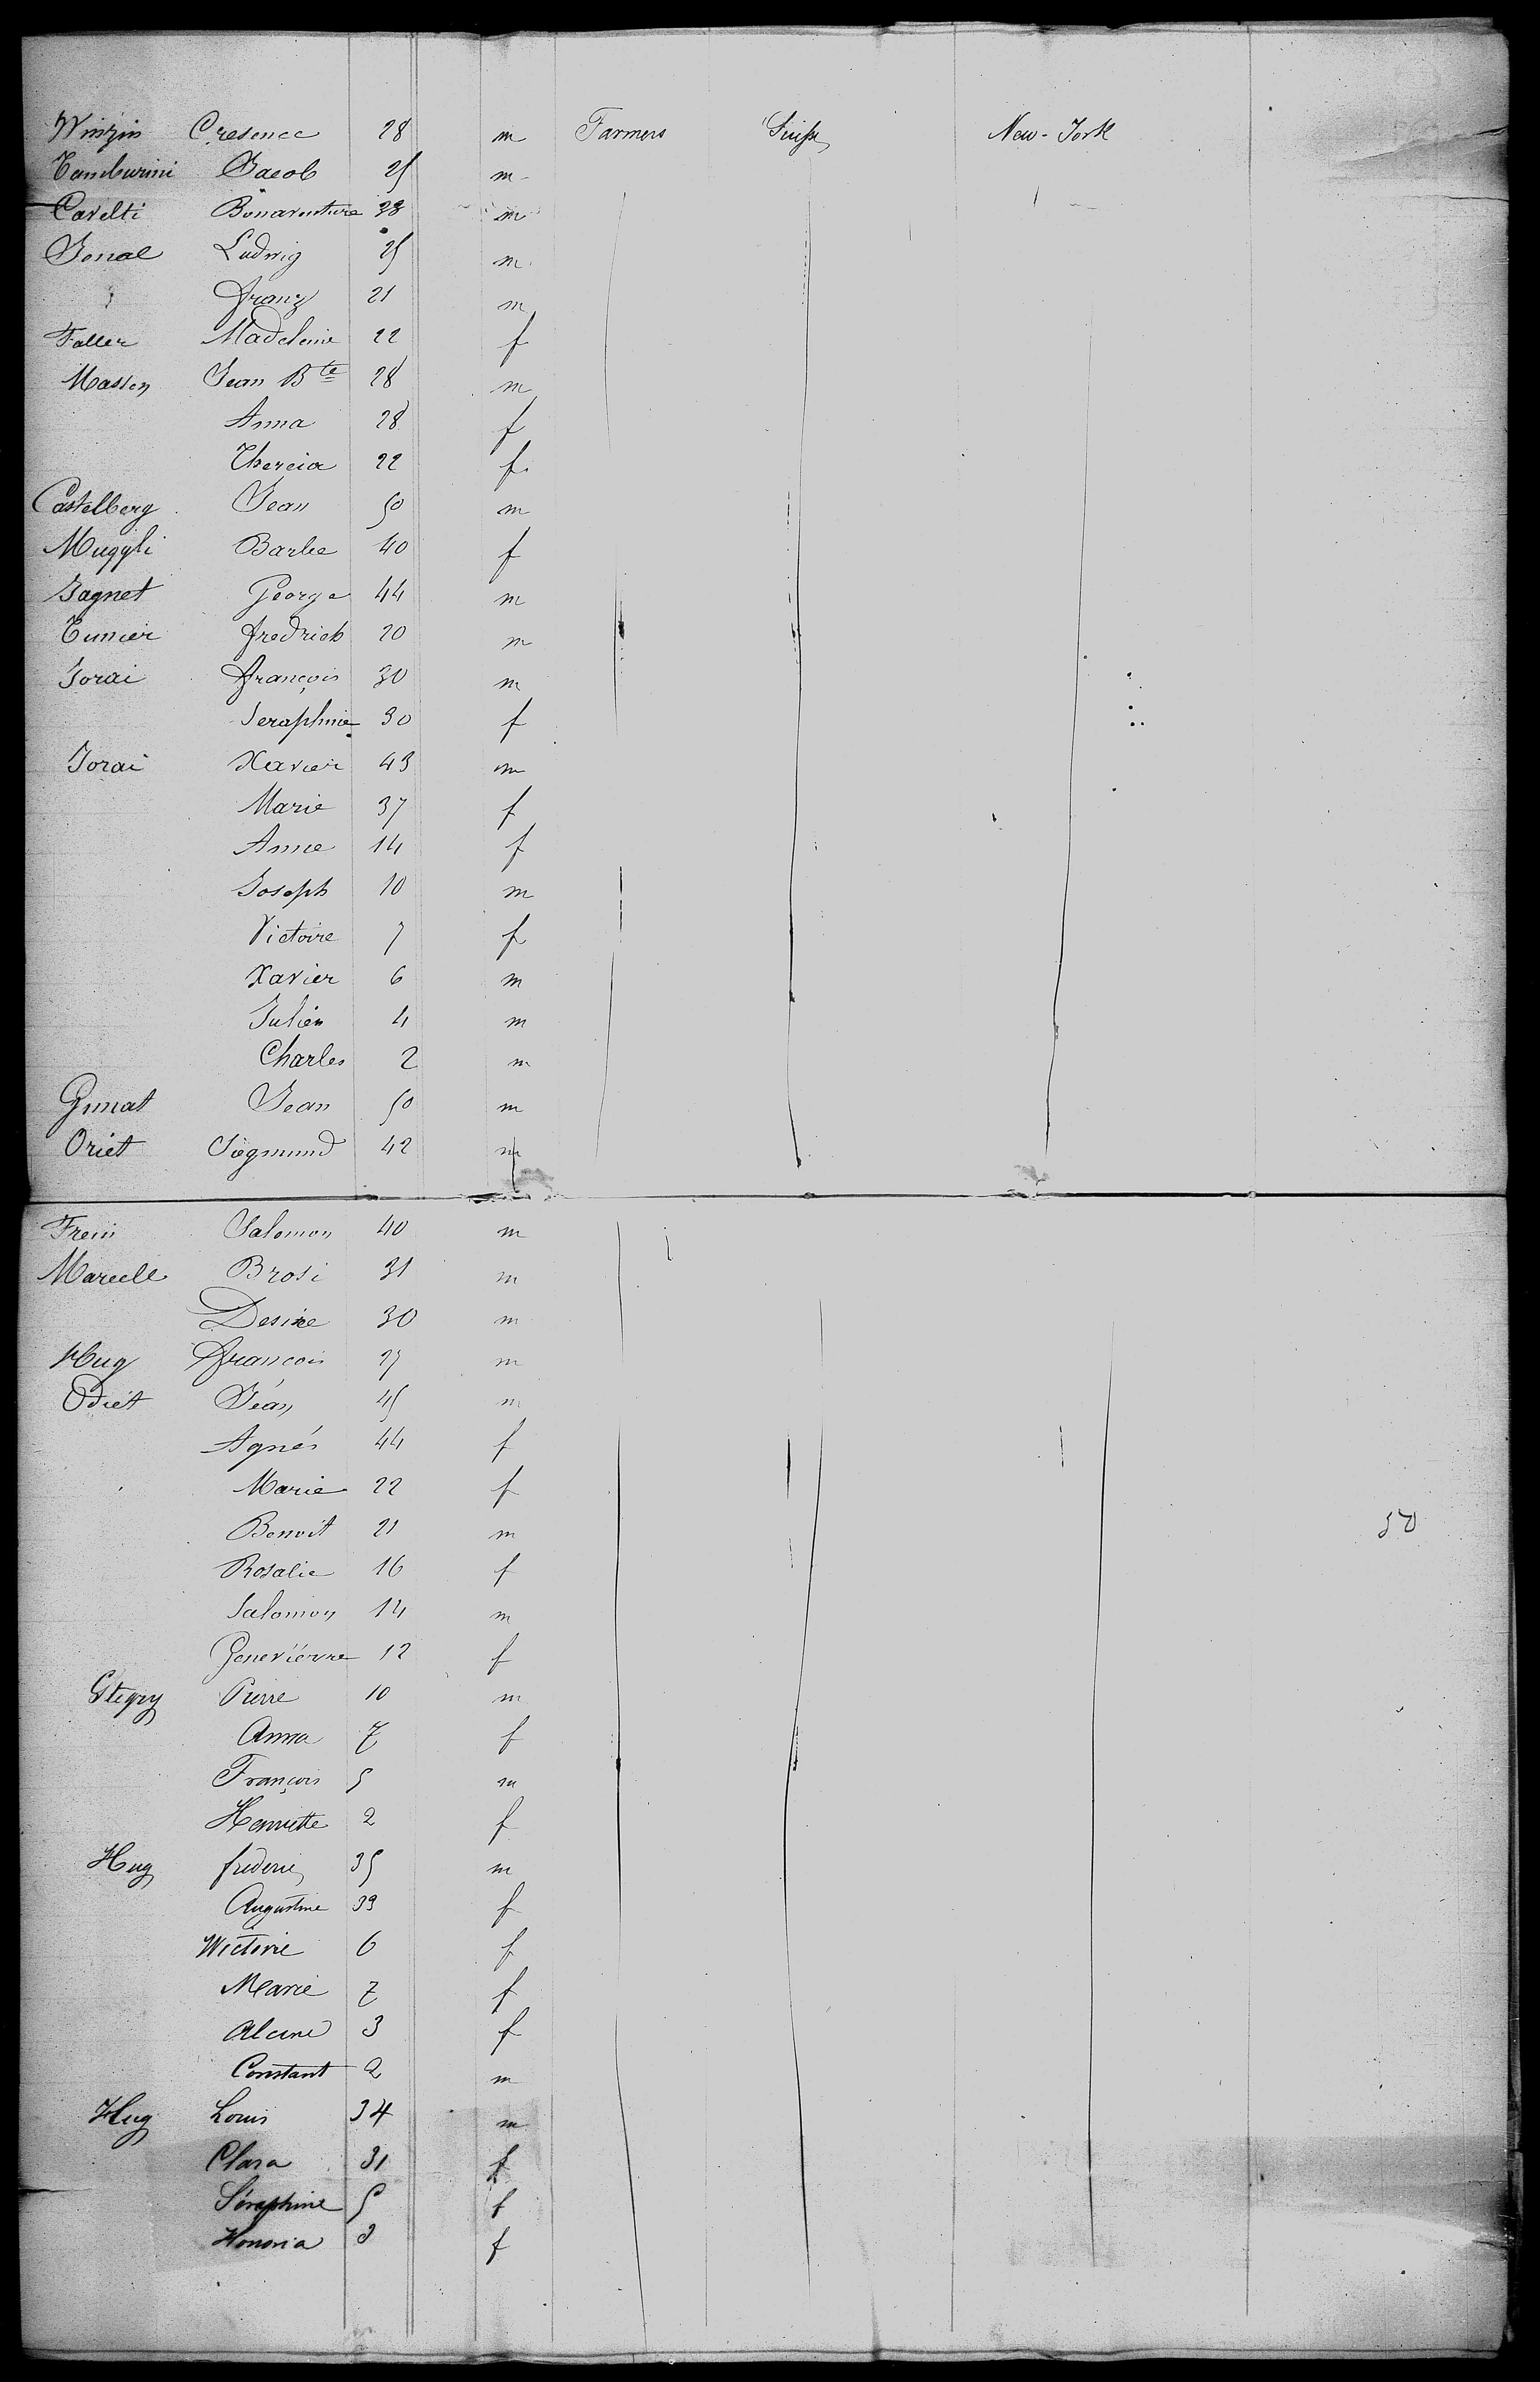 Winzin Cresence 28 m Farmers Suisse New-York
Tamburini Jacob 25 m
Cavelti Bonaventure 38 m
Jenal Ludwig 25 m
Franz 21 m
Faller Madeleine 22 f
Massen Jean Bte 28 m
Anna 28 f
Theresia 22 f
Castelberg Jean 50 m
Muggli Barbe 40 f
Jagnet George 44 m
Tunier fredrich 20 m
Jorai françois 30 m
Seraphine 30 f
Jorai Xavier 43 m
Marie 37 f
Anne 14 f
Joseph 10 m
Victoire 7 f
Xavier 6 m
Julien 4 m
Charles 2 m
Gunat Jean 50 m
Oriet Siegmund 42 m
Frein Salomon 40 m
Marcell Brosi 31 m
Desire 30 m
Hug françois 27 m
Odiet Jean 45 m
Agnés 44 f
Marie 22 f
Benoit 21 m 50
Rosalie 16 f
Salomon 14 m
Geneviévre 12 f
Pierre 10 m
Anna 7 f
François 5 m
Henriette 2 f
Hug frederic 35 m
Augustine 33 f
Wictorie 6 f
Marie 7 f
Alcine 3 f
Constant 2 m
Hug Louis 34 m
Clara 31 f
Séraphine 5 f
Honoria 3 f